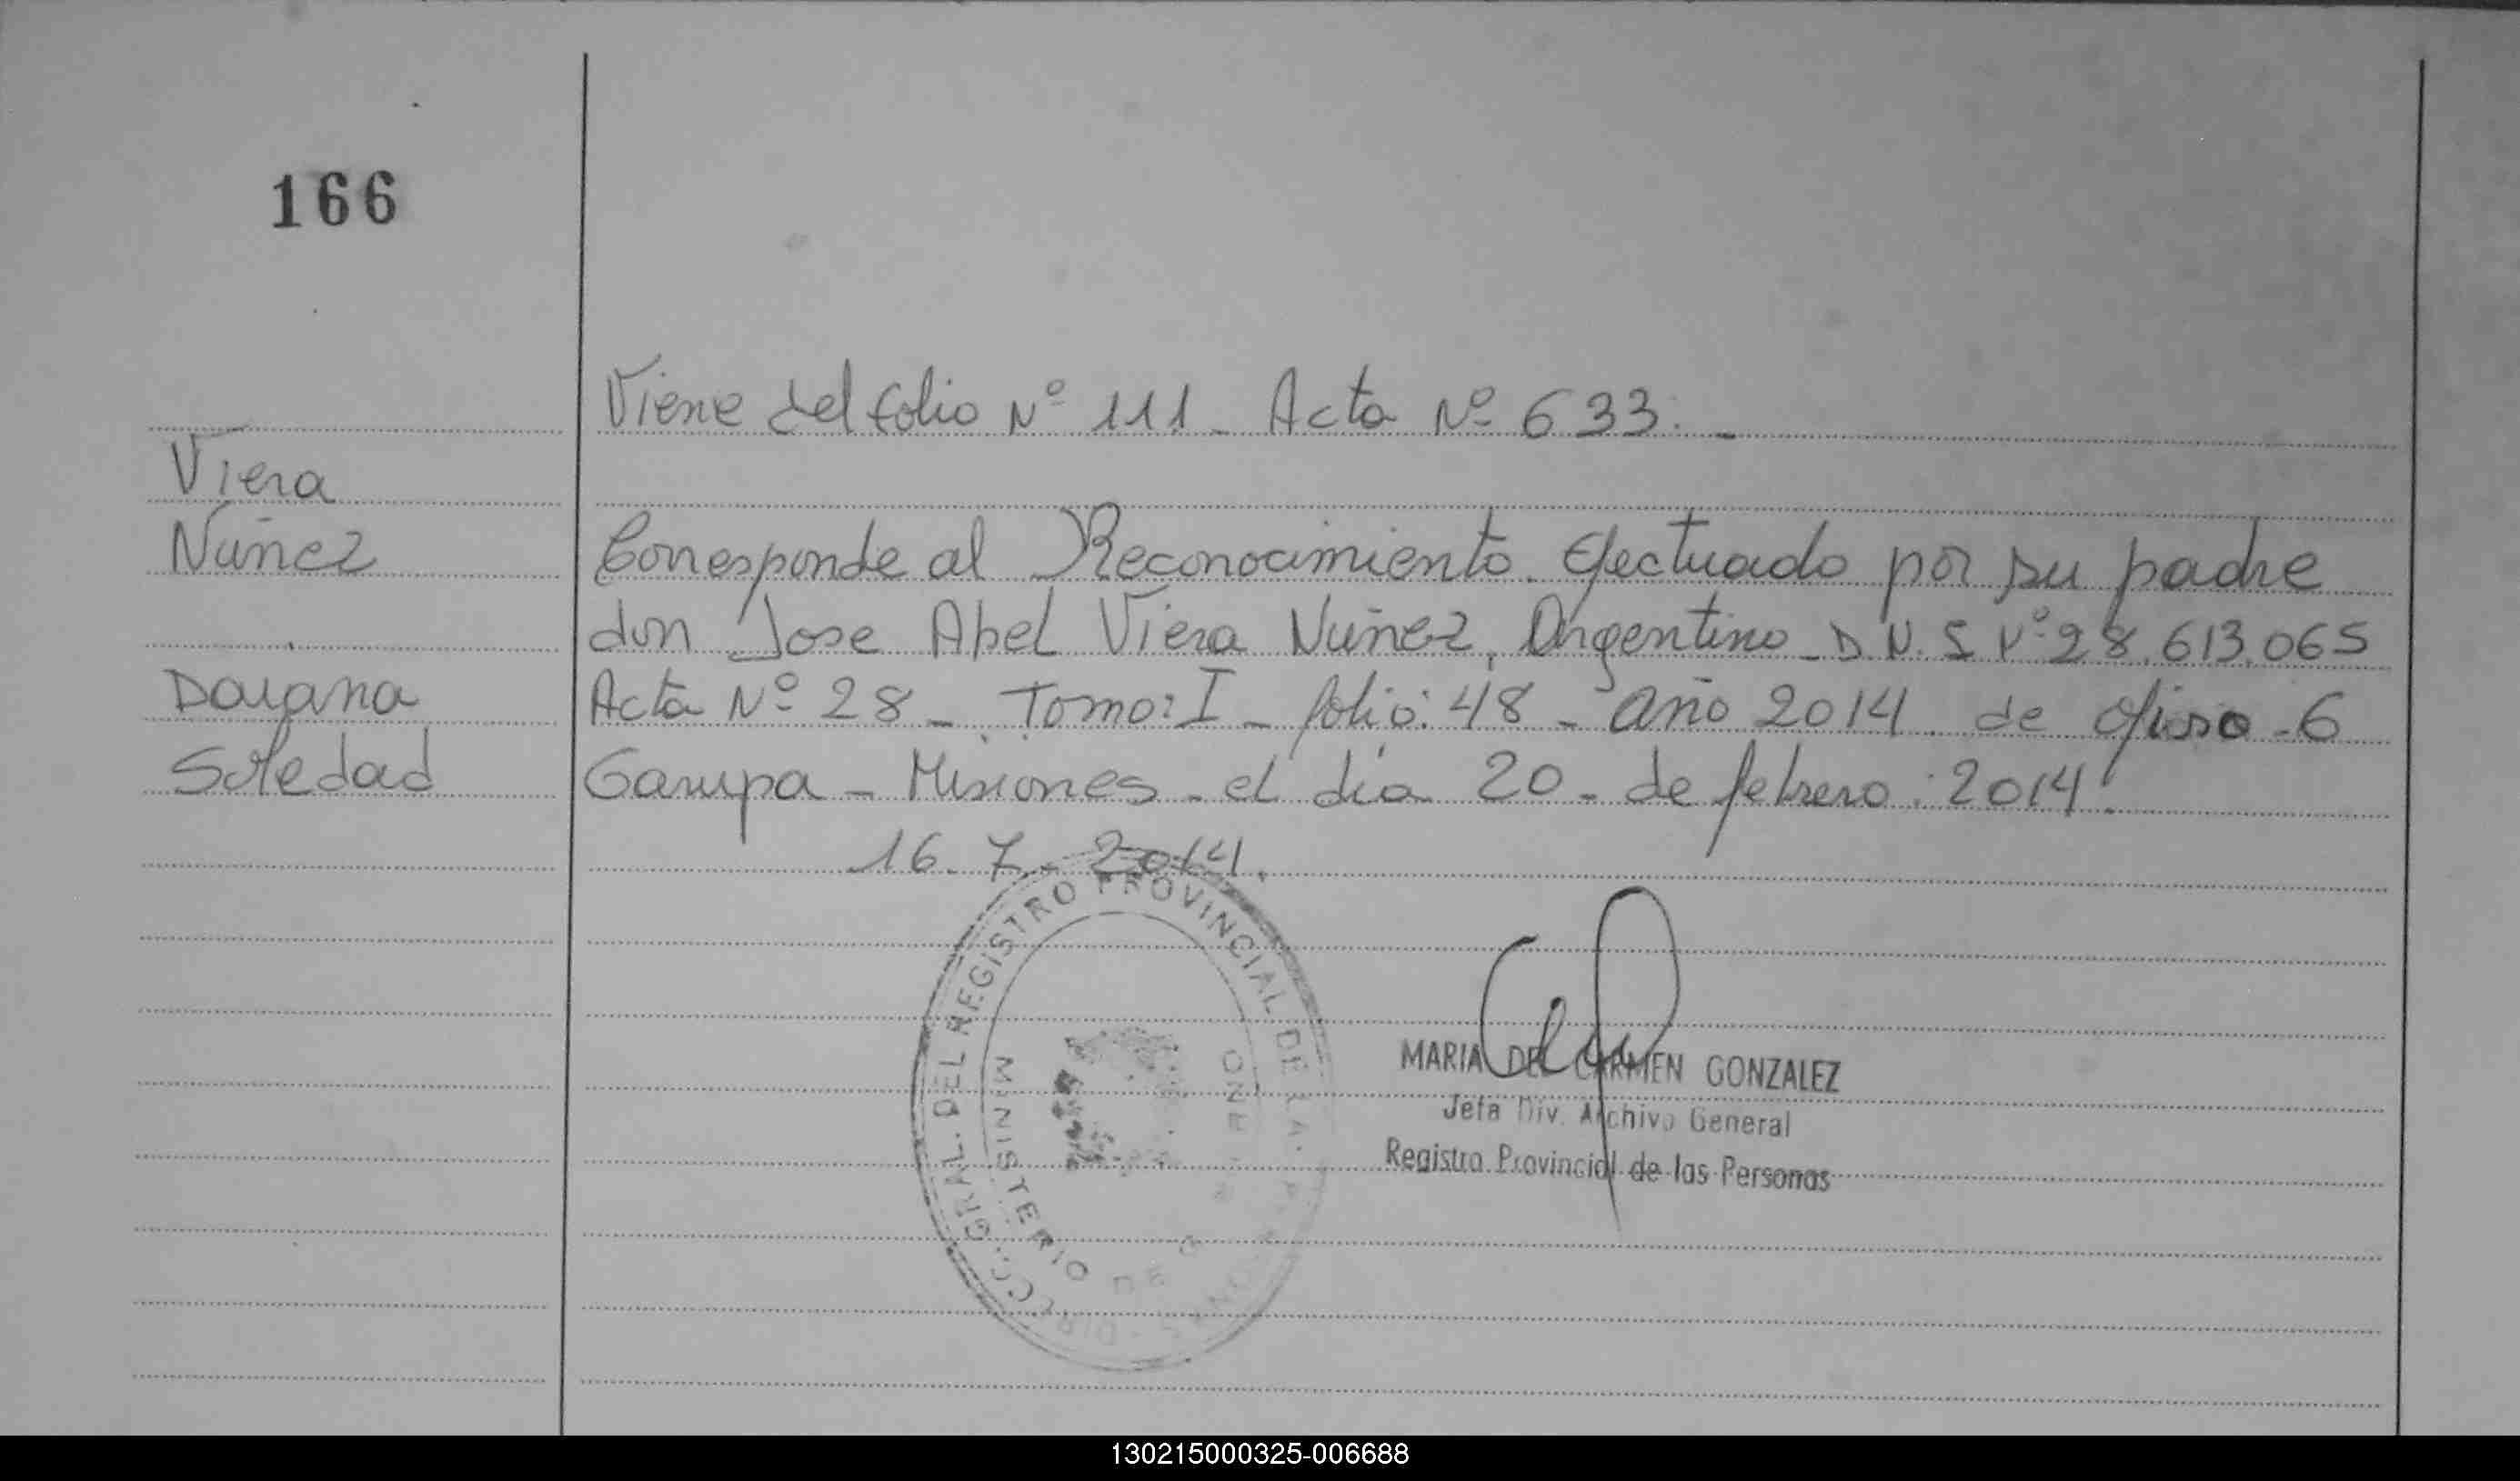 166
Viene del folio Nº 111 - Acta Nº 633. -
Viera
Nuñez
Corresponde al Reconocimiento Efectuado por su padre
don Jose Abel Viera Nuñez, Argentino - D.N.I Nº 28.613.065
Dayana
Acta Nº 28 - Tomo: I - folio: 48 - año 2014 de
6
Soledad
Garupa - Misiones - el día 20 - de febrero: 2014.
16. 7. 2014.
GRAL. DEL REGISTRO PROVINCIAL DE LA
MINISTERIO DE
MARIA DEL CARMEN GONZALEZ
Jefa Div. Archivo General
Registro Provincial de las Personas
130215000325-006688